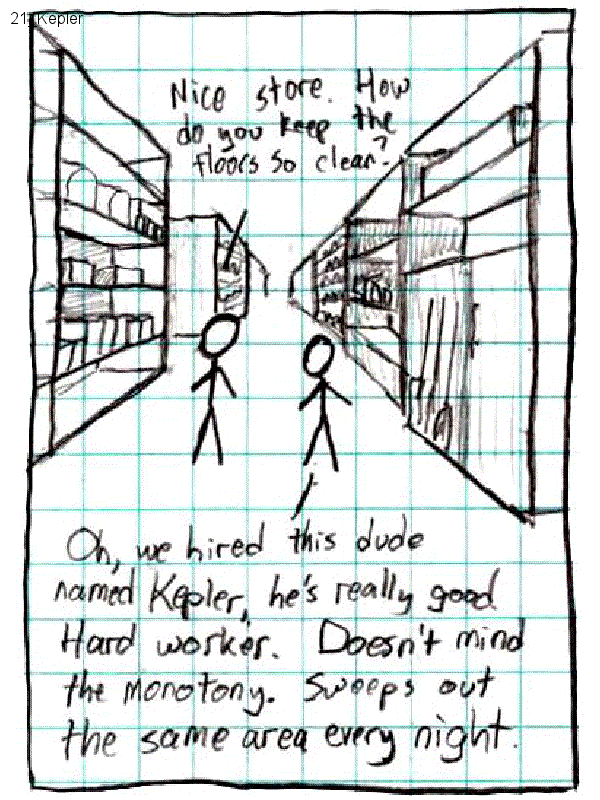 21: Kepler
Nice store. How
do you keep the
floors so clean?
Oh, we hired this dude
named Kepler, he's really good.
Hard worker. Doesn't mind
the monotony. Sweeps out
the same area every night.